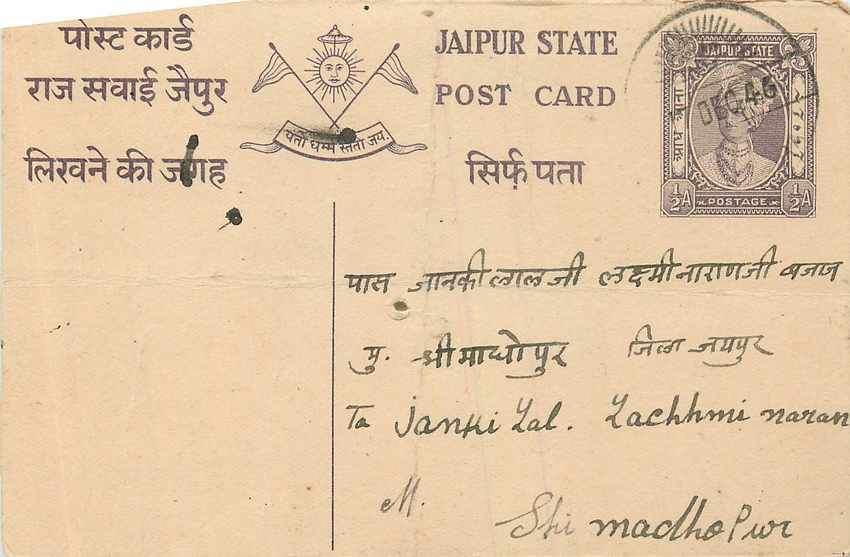 पोस्ट कार्ड
राज सवाई जैपुर
लिखने की जगह
यतो धर्म्म स्ततो जय.
JAIPUR STATE
POST CARD
सिर्फ़ पता
JAIPUR STATE
आध आना
½A POSTAGE ½A
DEC.46
पास जानकीलालजी लक्ष्मीनाराणजी बजाज
मु. श्रीमाधोपुर जिला जयपुर
To Janki Lal. Lachhmi naran
M.
Shi madhopur